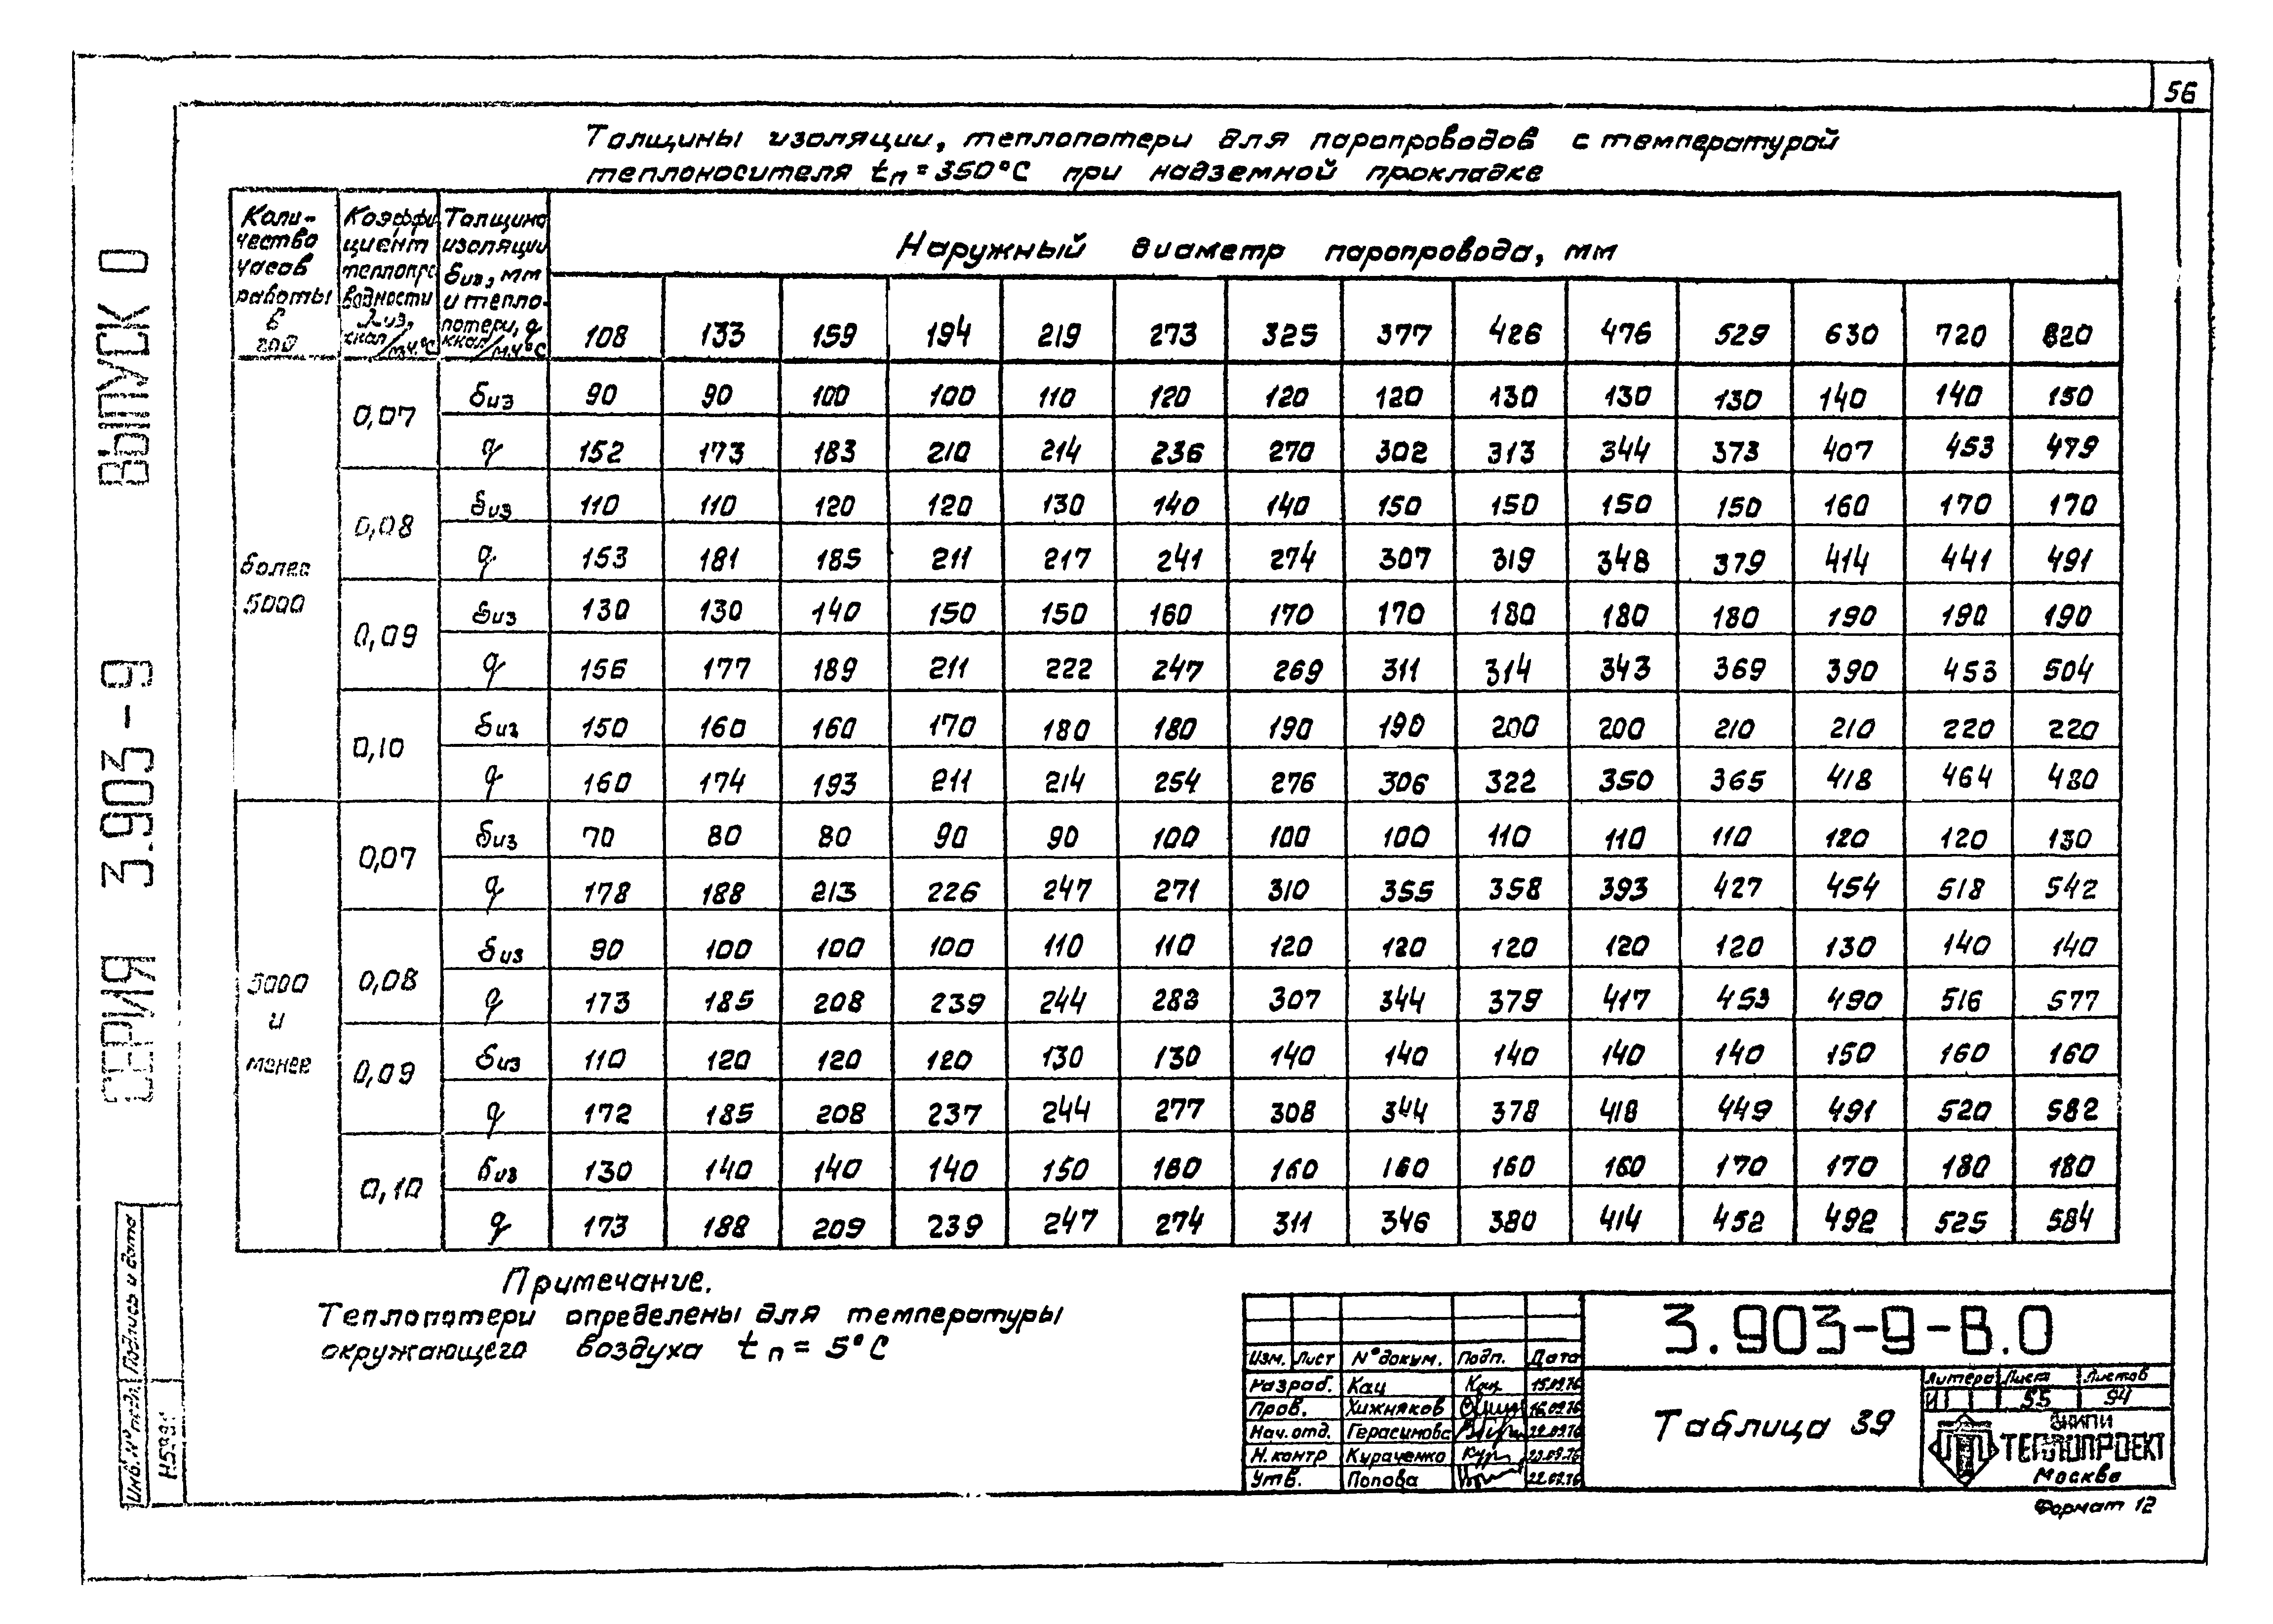 56
Толщины изоляции, теплопотери для паропроводов с температурой
теплоносителя tп=350°C при надземной прокладке
Коли-
чество
часов
работы
в
год
Коэффи
циент
теплопро
водности
λиз,
ккал/м.ч.°C
Толщина
изоляции
δиз, мм
и тепло-
потери, q
ккал/м.ч°C
Наружный диаметр паропровода, мм
108 133 159 194 219 273 325 377 426 476 529 630 720 820
более
5000
0,07 δиз 90 90 100 100 110 120 120 120 130 130 130 140 140 150
q 152 173 183 210 214 236 270 302 313 344 373 407 453 479
0,08 δиз 110 110 120 120 130 140 140 150 150 150 150 160 170 170
q 153 181 185 211 217 241 274 307 319 348 379 414 441 491
0,09 δиз 130 130 140 150 150 160 170 170 180 180 180 190 190 190
q 156 177 189 211 222 247 269 311 314 343 369 390 453 504
0,10 δиз 150 160 160 170 180 180 190 190 200 200 210 210 220 220
q 160 174 193 211 214 254 276 306 322 350 365 418 464 480
5000
и
менее
0,07 δиз 70 80 80 90 90 100 100 100 110 110 110 120 120 130
q 178 188 213 226 247 271 310 355 358 393 427 454 518 542
0,08 δиз 90 100 100 100 110 110 120 120 120 120 120 130 140 140
q 173 185 208 239 244 283 307 344 379 417 453 490 516 577
0,09 δиз 110 120 120 120 130 130 140 140 140 140 140 150 160 160
q 172 185 208 237 244 277 308 344 378 418 449 491 520 582
0,10 δиз 130 140 140 140 150 160 160 160 160 160 170 170 180 180
q 173 188 209 239 247 274 311 346 380 414 452 492 525 584
Примечание.
Теплопотери определены для температуры
окружающего воздуха tп = 5°C
СЕРИЯ 3.903-9 ВЫПУСК 0
Инв.№ подл. Подпись и дата
3.903-9-В.0
Изм. Лист №докум. Подп. Дата
Разраб. Кац Кац 15.09.76
Пров. Хижняков 16.09.76
Нач.отд. Герасимова 22.09.76
Н.контр Кураченко Кур
Утв. Попова 22.09.76
Таблица 39
Литера Лист Листов
И 55 94
ВНИПИ
ТЕПЛОПРОЕКТ
Москва
Формат 12